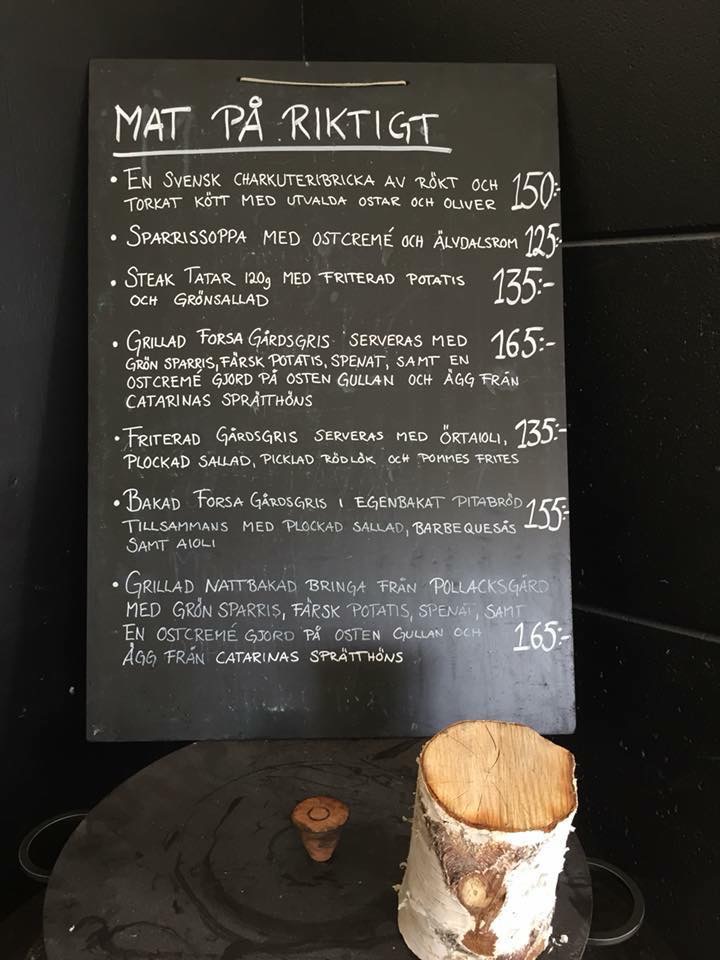 MAT PÅ RIKTIGT
• EN SVENSK CHARKUTERIBRICKA AV RÖKT OCH 150:-
TORKAT KÖTT MED UTVALDA OSTAR OCH OLIVER
• SPARRISSOPPA MED OSTCREMÉ OCH ÄLVDALSROM 125:-
• STEAK TATAR 120g MED FRITERAD POTATIS 135:-
OCH GRÖNSALLAD
• GRILLAD FORSA GÅRDSGRIS SERVERAS MED 165:-
GRÖN SPARRIS, FÄRSK POTATIS, SPENAT, SAMT EN
OSTCREMÉ GJORD PÅ OSTEN GULLAN OCH ÄGG FRÅN
CATARINAS SPRÄTTHÖNS
• FRITERAD GÅRDSGRIS SERVERAS MED ÖRTAIOLI, 135:-
PLOCKAD SALLAD, PICKLAD RÖDLÖK OCH POMMES FRITES
• BAKAD FORSA GÅRDSGRIS I EGENBAKAT PITABRÖD 155:-
TILLSAMMANS MED PLOCKAD SALLAD, BARBEQUESÅS
SAMT AIOLI
• GRILLAD NATTBAKAD BRINGA FRÅN POLLACKSGÅRD
MED GRÖN SPARRIS, FÄRSK POTATIS, SPENAT, SAMT
EN OSTCREMÉ GJORD PÅ OSTEN GULLAN OCH 165:-
ÄGG FRÅN CATARINAS SPRÄTTHÖNS